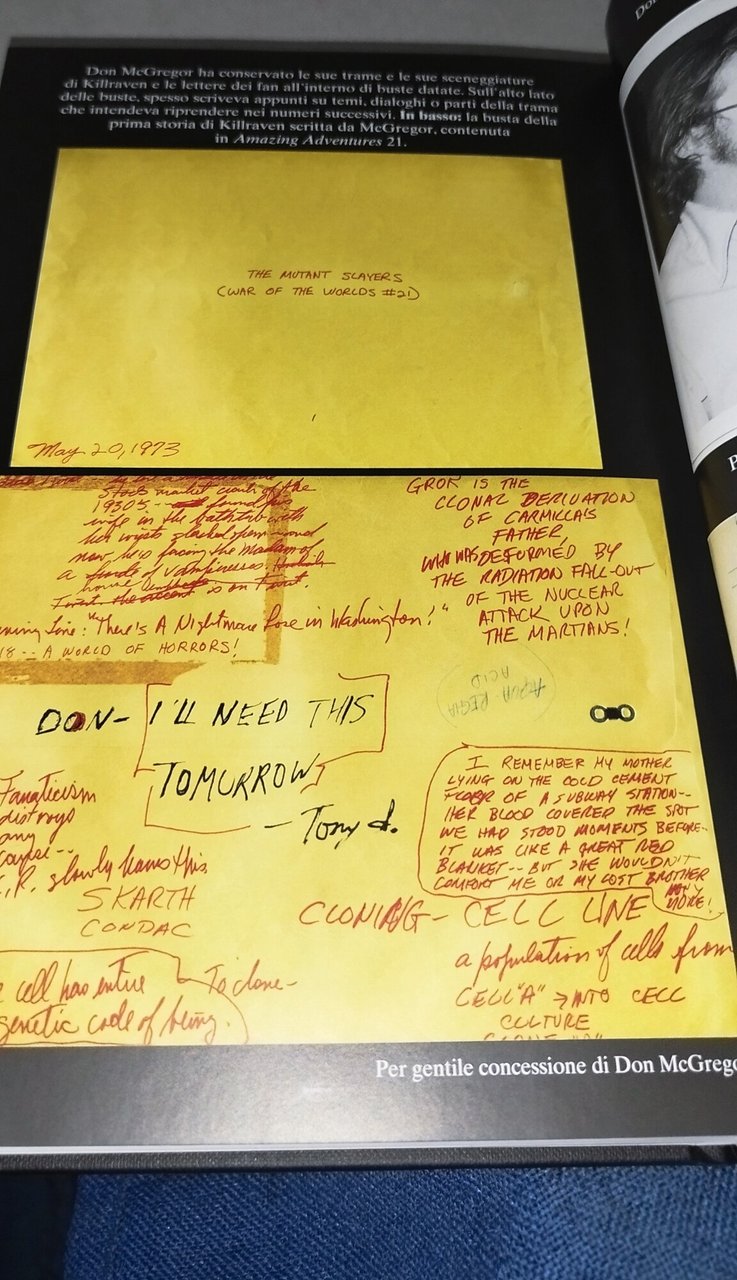 Don McGregor ha conservato le sue trame e le sue sceneggiature
di Killraven e le lettere dei fan all'interno di buste datate. Sull'alto lato
delle buste, spesso scriveva appunti su temi, dialoghi o parti della trama
che intendeva riprendere nei numeri successivi. In basso: la busta della
prima storia di Killraven scritta da McGregor, contenuta
in Amazing Adventures 21.
THE MUTANT SLAYERS
(WAR OF THE WORLDS #21)
May 20, 1973
Stock market crash of the
1930's -- found his
wife in the bathtub with
her wrists slashed open
now he's facing the Madam of
a
house is on Twist.
Line: "There's A Nightmare Loose in Washington!"
18 -- A WORLD OF HORRORS!
GROK IS THE
CLONAL DERIVATION
OF CARMILLA'S
FATHER,
WHO WAS DEFORMED BY
THE RADIATION FALL-OUT
OF THE NUCLEAR
ATTACK UPON
THE MARTIANS!
AQUA-REGIA
ACID
DON- I'LL NEED THIS
TOMORROW
- Tony d.
I REMEMBER MY MOTHER
LYING ON THE COLD CEMENT
FLOOR OF A SUBWAY STATION--
HER BLOOD COVERED THE SPOT
WE HAD STOOD MOMENTS BEFORE--
IT WAS LIKE A GREAT RED
BLANKET-- BUT SHE WOULDN'T
COMFORT ME OR MY LOST BROTHER
ANY
MORE!
Fanaticism
destroys
any
cause--
K.R. slowly learns this
SKARTH
CONDAC
CLONING- CELL LINE
a population of cells from
CELL "A" → INTO CELL
CULTURE
cell has entire
genetic code of being.
To clone-
Per gentile concessione di Don McGrego